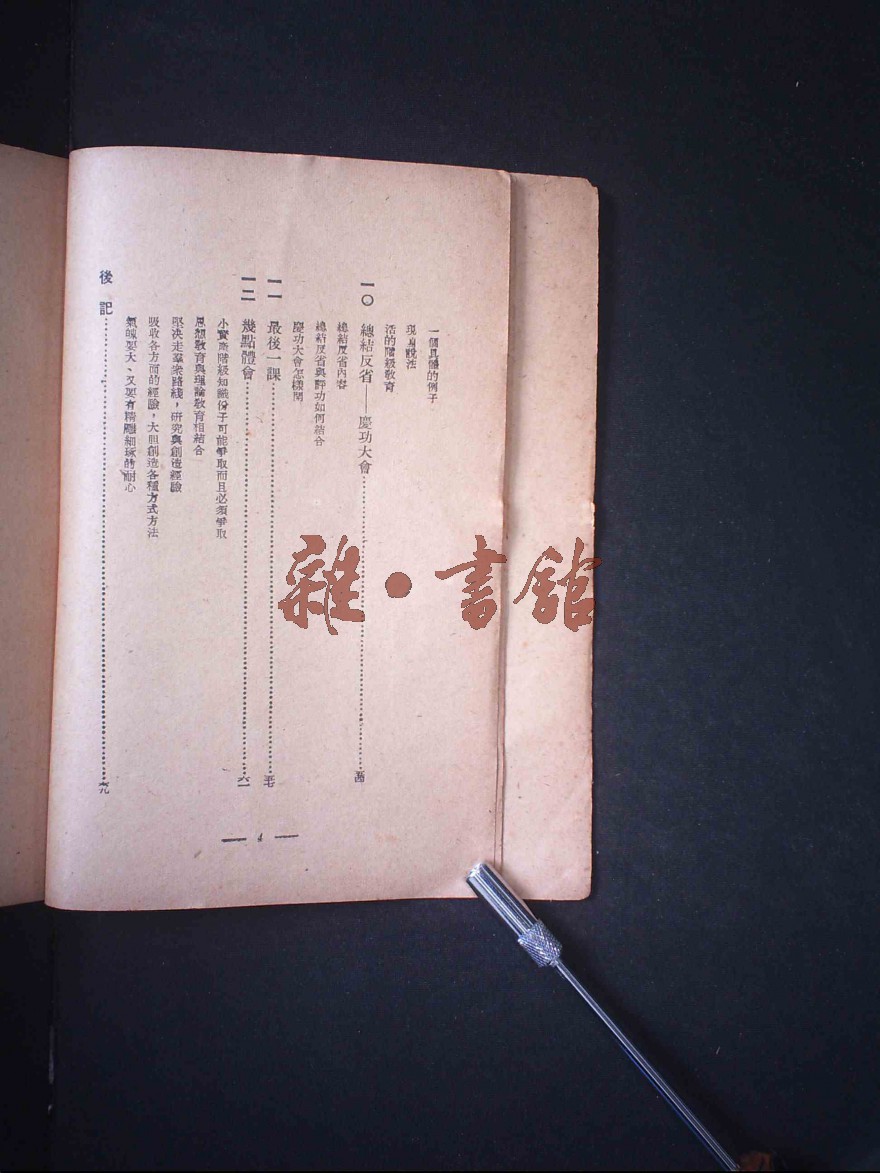 一個具體的例子
現身說法
活的階級敎育
一〇 總結反省——慶功大會……………………
總結反省內容
總結反省與評功如何結合
慶功大會怎樣開
一一 最後一課……………………五七
一二 幾點體會……………………六一
小資產階級知識份子可能爭取而且必須爭取
思想敎育與理論敎育相結合
堅决走羣衆路綫，研究與創造經驗
吸收各方面的經驗，大胆創造各種方式方法
氣魄要大、又要有精雕細琢的耐心
後 記……………………六九
— 4 —
雜·書館